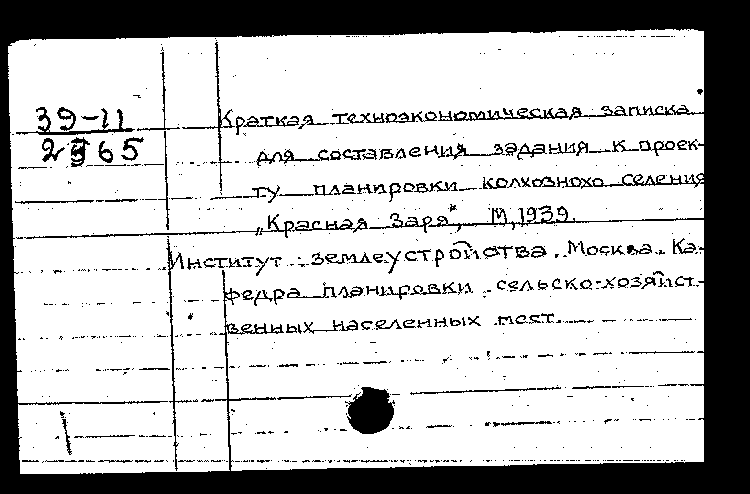 39-11
2565
Краткая техноэкономическая записка
для составления задания к проек-
ту планировки колхозного селения
„Красная Заря", М, 1939.
Институт землеустройства. Москва. Ка-
федра планировки сельско-хозяйст-
венных населенных мест.